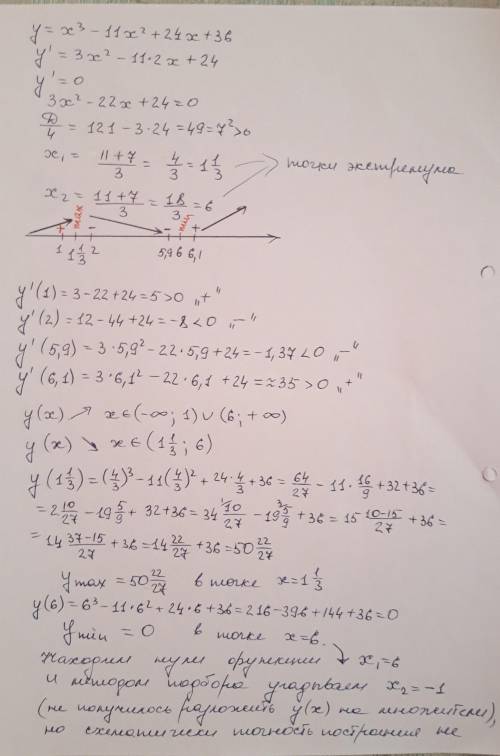 y = x³ − 11x² + 24x + 36
y' = 3x² − 11·2x + 24
y' = 0
3x² − 22x + 24 = 0
D/4 = 121 − 3·24 = 49 = 7² > 0
x₁ = (11+7)/3 = 4/3 = 1 1/3
точки экстремума
x₂ = (11+7)/3 = 18/3 = 6
+ max − − min +
1 1 1/3 2 5,9 6 6,1
y'(1) = 3 − 22 + 24 = 5 > 0 „+"
y'(2) = 12 − 44 + 24 = −8 < 0 „−"
y'(5,9) = 3·5,9² − 22·5,9 + 24 = −1,37 < 0 „−"
y'(6,1) = 3·6,1² − 22·6,1 + 24 = ≈35 > 0 „+"
y(x) ↗ x ∈ (−∞; 1) ∪ (6; +∞)
y(x) ↘ x ∈ (1 1/3; 6)
y(1 1/3) = (4/3)³ − 11(4/3)² + 24·4/3 + 36 = 64/27 − 11·16/9 + 32 + 36 =
= 2 10/27 − 19 5/9 + 32 + 36 = 34 10/27 − 19 5/9 + 36 = 15 (10−15)/27 + 36 =
= 14 (37−15)/27 + 36 = 14 22/27 + 36 = 50 22/27
y max = 50 22/27 в точке x = 1 1/3
y(6) = 6³ − 11·6² + 24·6 + 36 = 216 − 396 + 144 + 36 = 0
y min = 0 в точке x = 6.
Находим нули функции ↘ x₁ = 6
и методом подбора угадываем x₂ = −1
(не получилось разложить y(x) на множители),
но схематически точность построения не